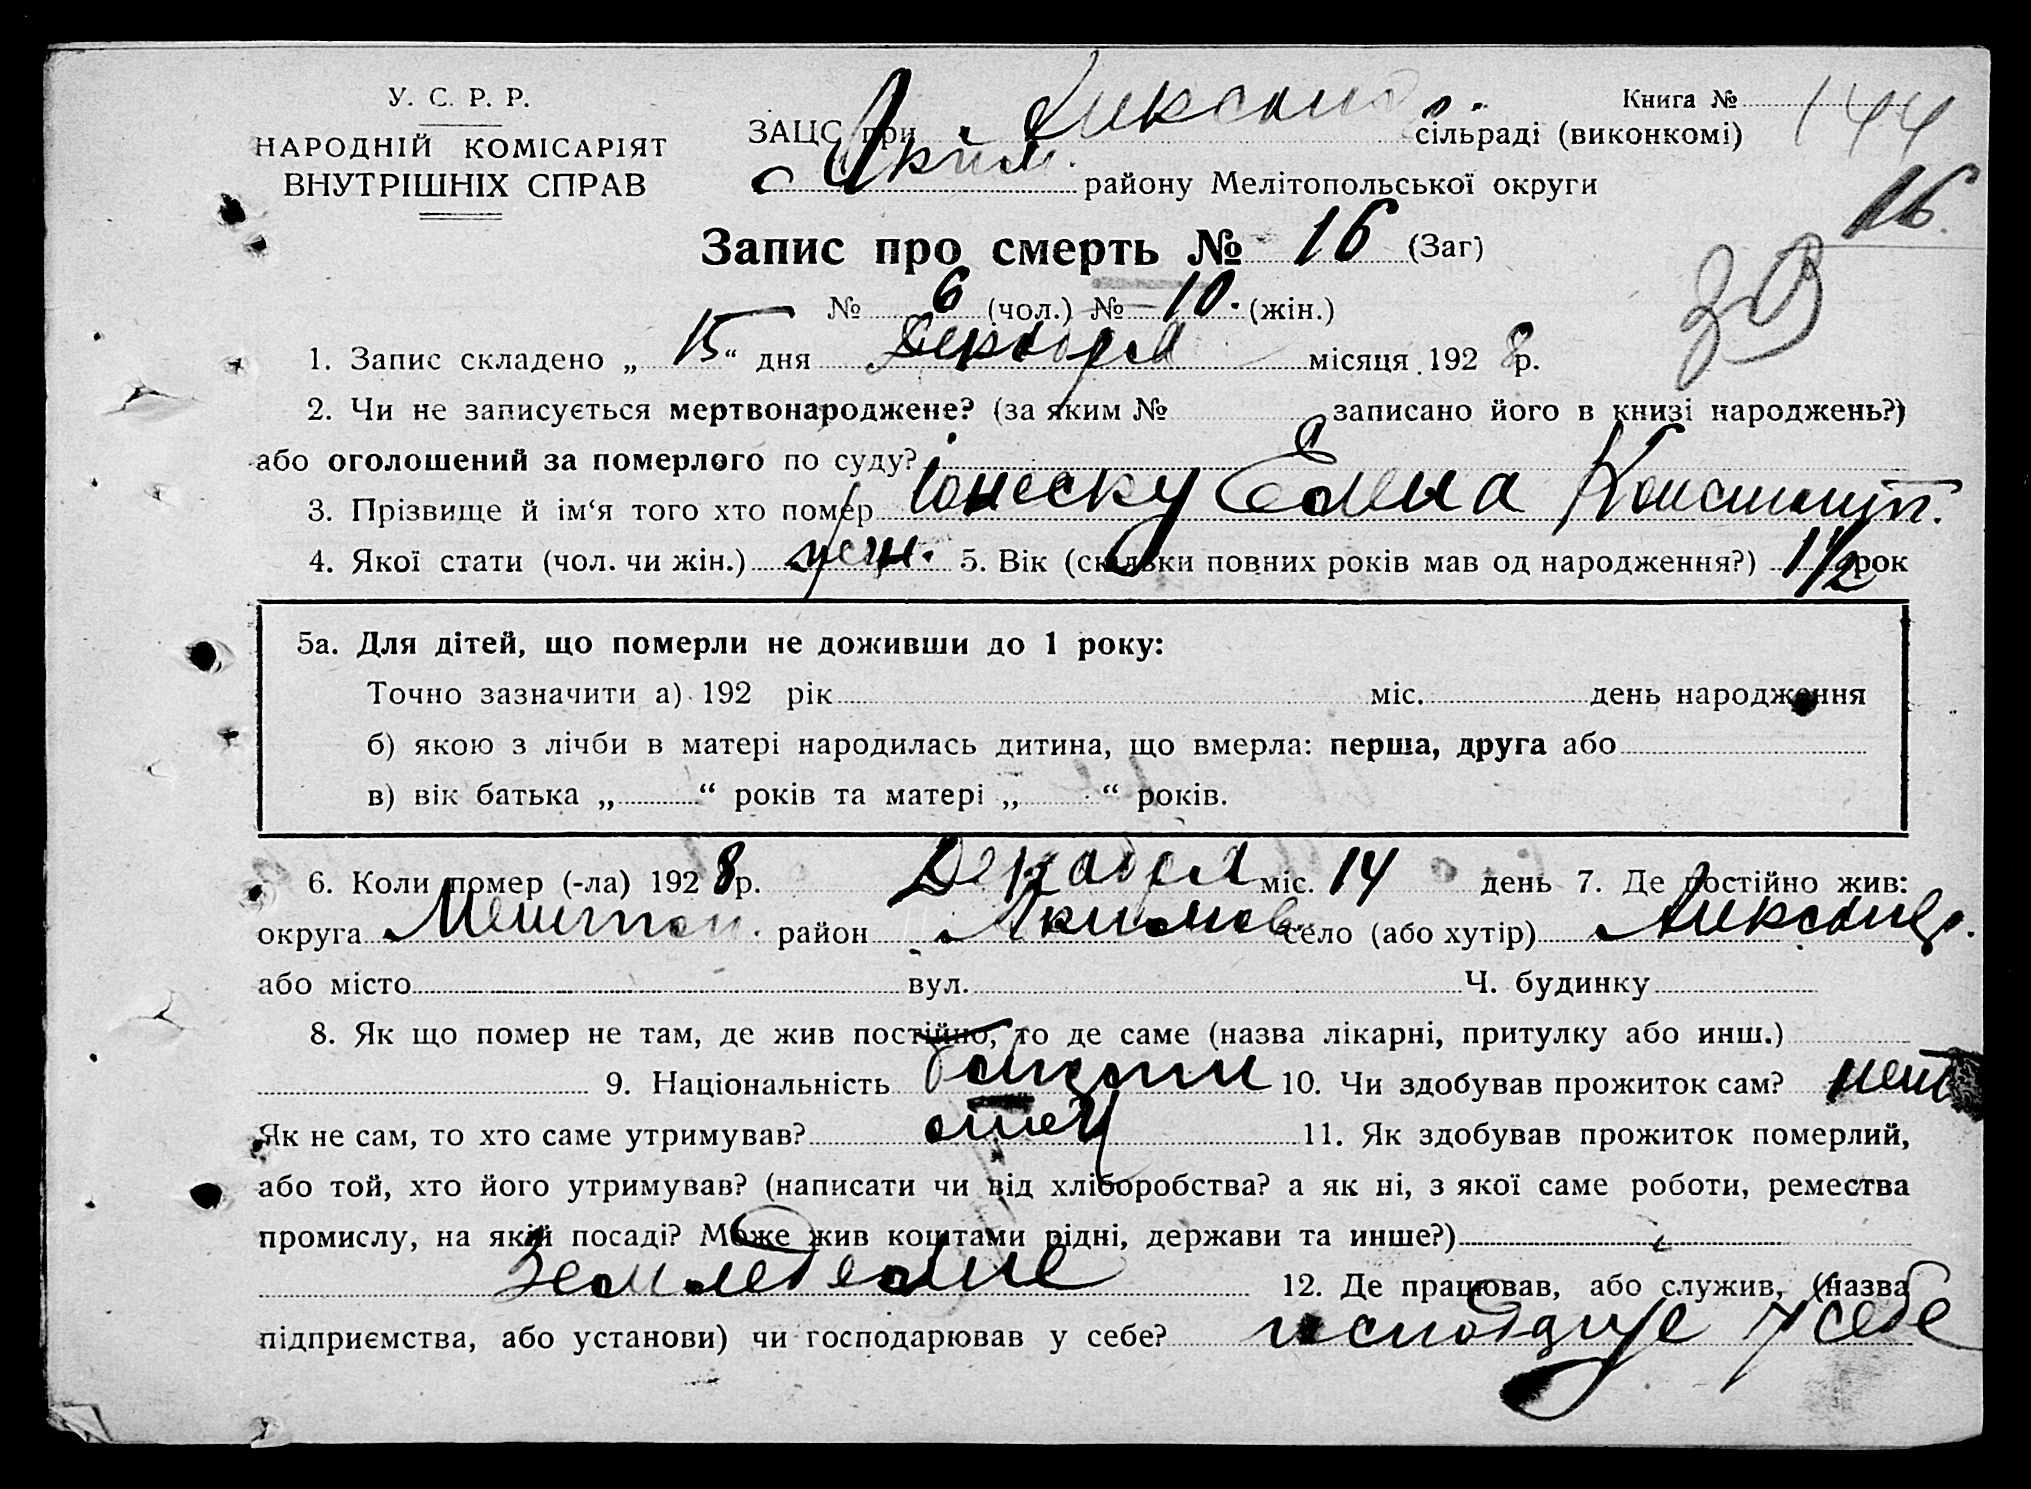 У. С. Р. Р.
НАРОДНІЙ КОМІСАРІЯТ
ВНУТРІШНІХ СПРАВ
Книга № 144
ЗАЦС при Александ. сільраді (виконкомі)
Аким. району Мелітопольської округи
16
Запис про смерть № 16 (Заг)
39
№ 6 (чол.) № 10. (жін.)
1. Запис складено „ 15 “ дня Декабря місяця 1928 р.
2. Чи не записується мертвонароджене? (за яким № записано його в книзі народжень?)
або оголошений за померлого по суду?
3. Прізвище й ім‘я того хто помер Іонеску Елена Констант.
4. Якої стати (чол. чи жін.) жен. 5. Вік (скільки повних років мав од народження?) 1 1/2 рок
5а. Для дітей, що померли не доживши до 1 року:
Точно зазначити а) 192 рік міс. день народження
б) якою з лічби в матері народилась дитина, що вмерла: перша, друга або
в) вік батька „ “ років та матері „ “ років.
6. Коли помер (-ла) 1928 р. Декабря міс. 14 день 7. Де постійно жив:
округа Мелитоп. район Акимов. село (або хутір) Александр.
або місто вул. Ч. будинку
8. Як що помер не там, де жив постійно, то де саме (назва лікарні, притулку або инш.)
9. Національність 10. Чи здобував прожиток сам? нет
Як не сам, то хто саме утримував? отец 11. Як здобував прожиток померлий,
або той, хто його утримував? (написати чи від хліборобства? а як ні, з якої саме роботи, ремества
промислу, на якій посаді? Може жив коштами рідні, держави та инше?)
Земледелие 12. Де працював, або служив, (назва
підприємства, або установи) чи господарював у себе? господарує у себе